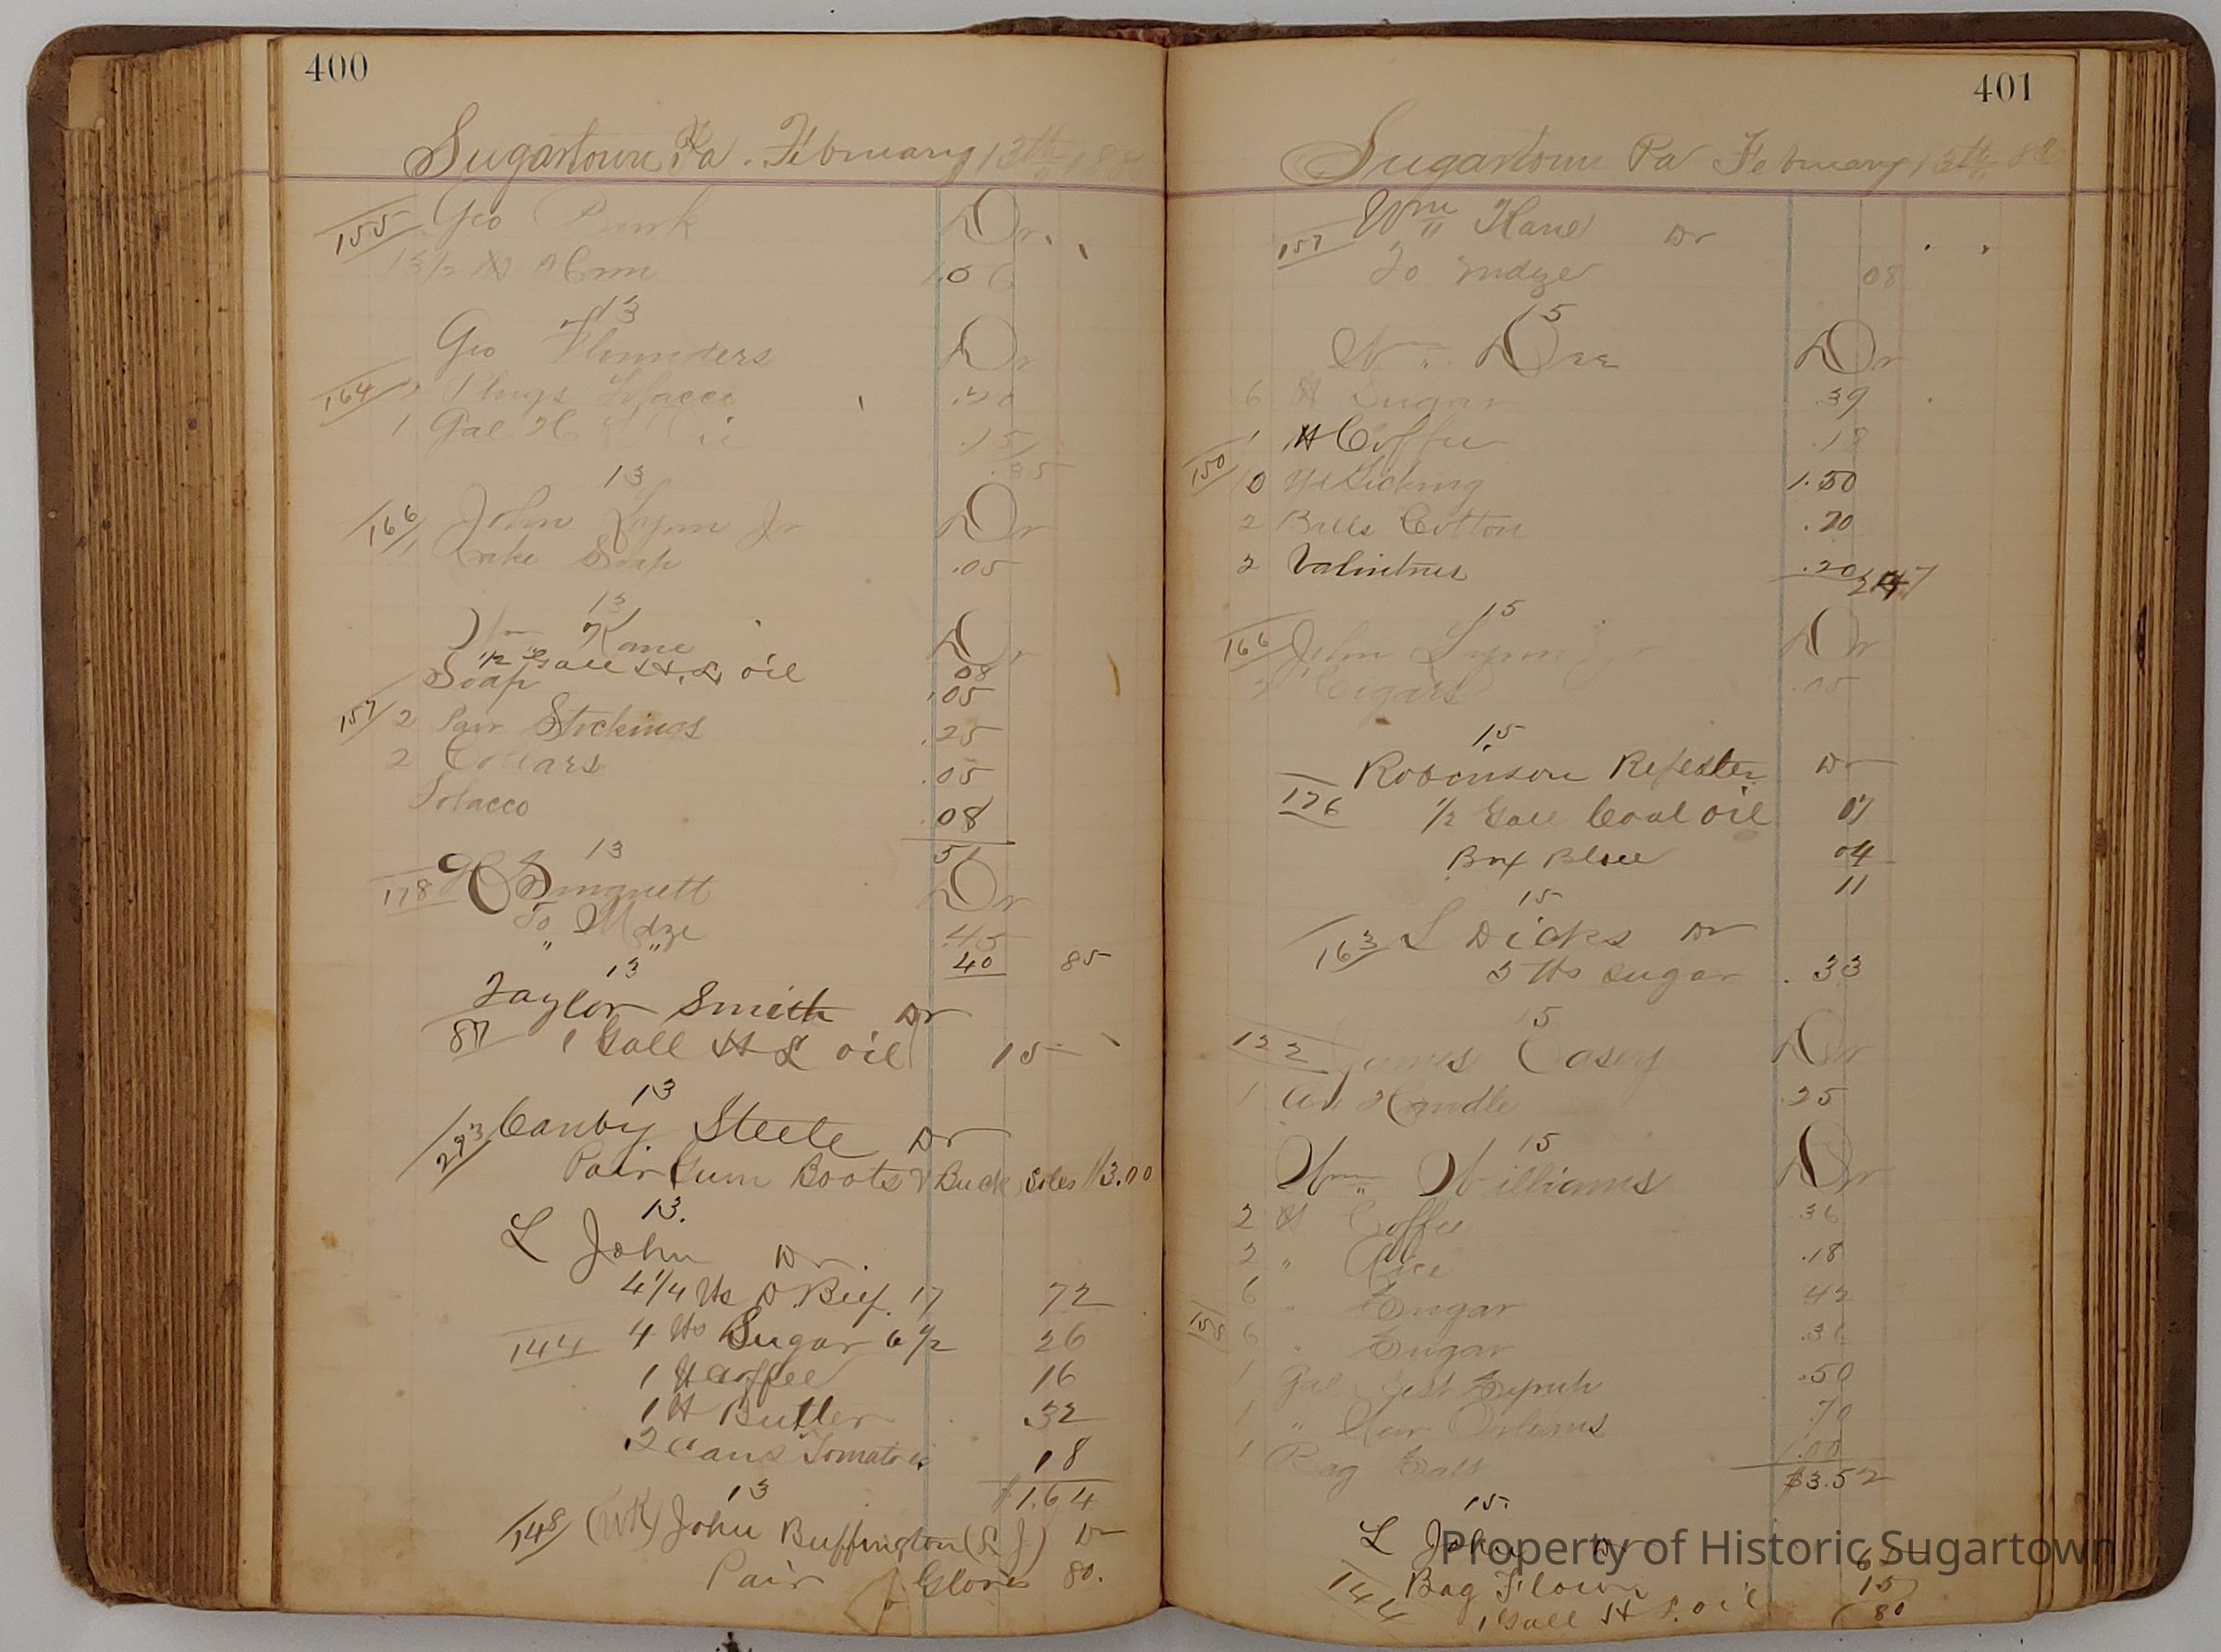 400
Sugartown Pa. February 13th 188
155 Geo Dr.
13 1/2 ℔ 1.0
13
Geo Flounders Dr
164 Plugs Tobacco .20
1 Gal H .15
.35
13
166 John Lynn Jr Dr
1 Cake Soap .05
13
Wm Kane Dr
1/2 Gall H. L oil 08
Soap .05
157 2 Pair Stockings .25
2 Collars .05
Tobacco .08
51
13
178 Dr
To Mdze .45
" " 40 85
13
Taylor Smith Dr
87 1 Gall H L oil 15
13
293 Canby Steele Dr
Pair Gum Boots & Buck Soles $3.00
13.
L John Dr
4 1/4 ℔s D. Beef. 17 72
144 4 ℔s Sugar 6 1/2 26
1 ℔ Coffee 16
1 ℔ Butter .32
2 Cans Tomatoes 18
$1.64
13
148 (WK) John Buffington (S. J) Dr
Pair Gloves 80.
401
Sugartown Pa February 15th 88
157 Wm Kane Dr
To mdze 08
15
Dr
6 ℔ Sugar .39
1 ℔ Coffee .18
150 10 Yd Ticking 1.50
2 Balls Cotton .20
2 Valintines .20
2.47
15
166 John Lynn Jr Dr
2 Cigars .05
15
Robinson Dr
176 1/2 Gall Coal oil 07
Box Blue 04
11
15
163 L Dicks Dr
5 ℔s sugar .33
15
122 James Casey Dr
1 Ax Handle .25
15
Wm Williams Dr
2 ℔ Coffee .36
2 " Rice .18
6 " Sugar .42
158 6 " Sugar .36
1 Gal Best Syruh .50
1 " New Orleans .70
1 Bag Salt 1.00
$3.52
15.
L John Dr
144 Bag Flour 65
1 Gall H L. oil 15
80
Property of Historic Sugartown